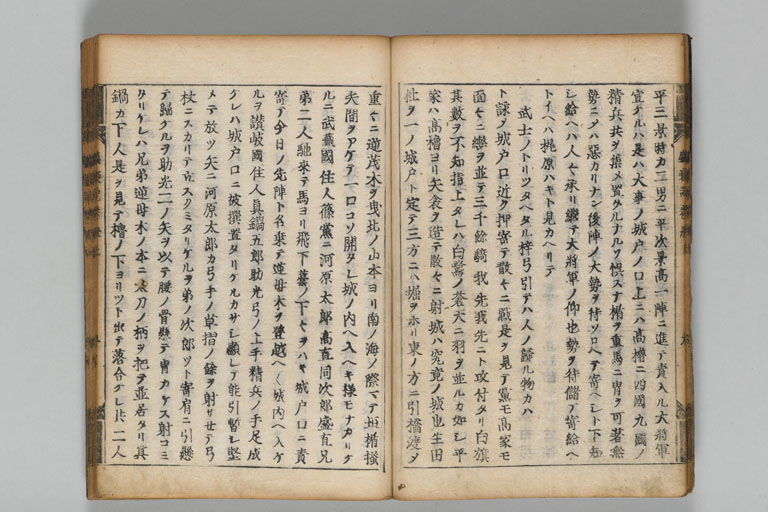 平三景時カ二男ニ平次景高一陣ニ進テ責入ル大将軍
宣ケルハ是ハ大事ノ城戸ノ口上ニハ高櫓ニ四國九國ノ
精兵共ヲ集メ置タルナルソ悞スナ楯ヲ重馬ニ冑ヲ可著無
勢ニノハ惡カリナン後陣ノ大勢ヲ待ソロヘテ寄ヘシト下知
シ給ヘハ人々承リ繼テ大将軍ノ仰也勢ヲ待儲テ寄給ヘ
トイヘハ梶原ハキト見カヘリテ
武士ノトリツタヘタル梓弓引テハ人ノ歸ル物カハ
ト詠ノ城戸口近ク押寄テ散々ニ戰是ヲ見テ黨モ高家モ
面々ニ轡ヲ並テ三千餘騎我先我先ニト攻付タリ白旗
其數ヲ不知指上タレハ白鷺ノ蒼天ニ羽ヲ並ルカ如シ平
家ハ高櫓ヨリ矢衾ヲ造テ散々ニ射城ハ究竟ノ城也生田
社ヲ一ノ城戸ト定テ三方ニハ堀ヲホリ東ノ方ニ引橋渡メ
重々ニ逆茂木ヲ曳北ノ山本ヨリ南ノ海ノ際マテ垣楯掻
矢間ヲアケテ一口コソ開タレ城ノ内ヘ入ヘキ様モナカリケ
ルニ武藏國住人篠黨ニ河原太郎高直同次郎盛直兄
弟二人馳來テ馬ヨリ飛下藁ノ下々ヲハキ城戸口ニ責
寄テ今日ノ先陣ト名乗テ逆母木ヲ登越ヘ城内ヘ入ケ
ルヲ讃岐國住人真鍋五郎助光弓ノ上手精兵ノ手足成
ケレハ城戸口ニ被撰置タリケルカサシ顯レテ能引暫シ堅
メテ放ツ矢ニ河原太郎カ弓手ノ草摺ノ餘ヲ射サセテ弓
杖ニスカリテ立スクミタリケルヲ弟ノ次郎ツト寄肩ニ引懸
テ歸ケルヲ助光二ノ矢ヲ以テ腰ノ骨懸テ冑カケス射コミ
タリケレハ兄弟逆母木ノ本ニ太刀ノ柄ヲ把テ並居タリ真
鍋カ下人是ヲ見テ櫓ノ下ヨリツト出テ落合テレハ二人